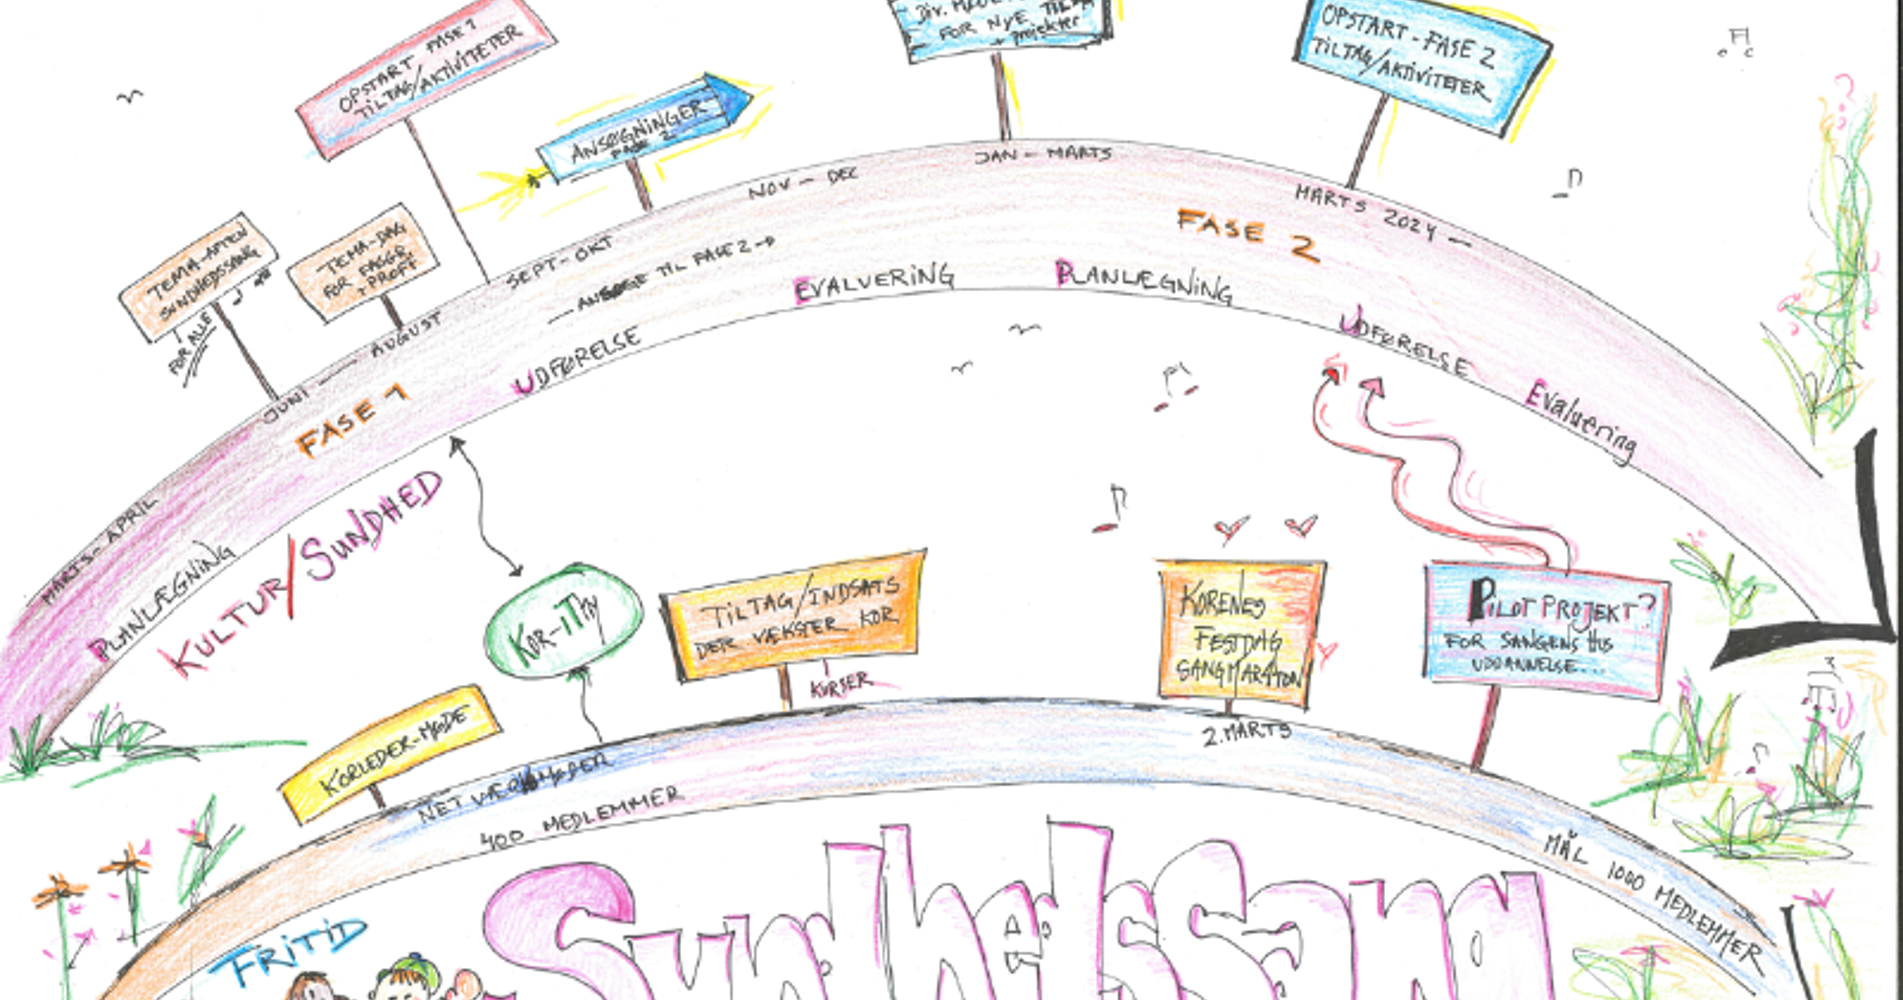 OPSTART FASE 1
TILTAG/AKTIVITETER
ANSØGNINGER
FASE 2
FOR NYE TILTAG
+ Projekter
OPSTART - FASE 2
TILTAG/AKTIVITETER
TEMA-AFTEN
SUNDHEDSSANG
FOR ALLE
TEMA-DAG
FOR FAGGR.
+ PROFF
MARTS - APRIL
JUNI — AUGUST
SEPT - OKT
NOV - DEC
JAN - MARTS
MARTS 2024 —
FASE 1
— ANSØGE TIL FASE 2 →
FASE 2
PLANLÆGNING
UDFØRELSE
EVALUERING
PLANLÆGNING
UDFØRELSE
Evaluering
KULTUR/SUNDHED
KOR-iThy
TILTAG/INDSATS
DER VÆKSTER KOR
KURSER
KORENES
FESTDAG
SANGMARATON
PILOTPROJEKT?
FOR SANGENS HUS
UDDANNELSE...
KORLEDER-MØDE
NETVÆRKSMØDER
2. MARTS
400 MEDLEMMER
MÅL 1000 MEDLEMMER
FRITID
SundhedsSang